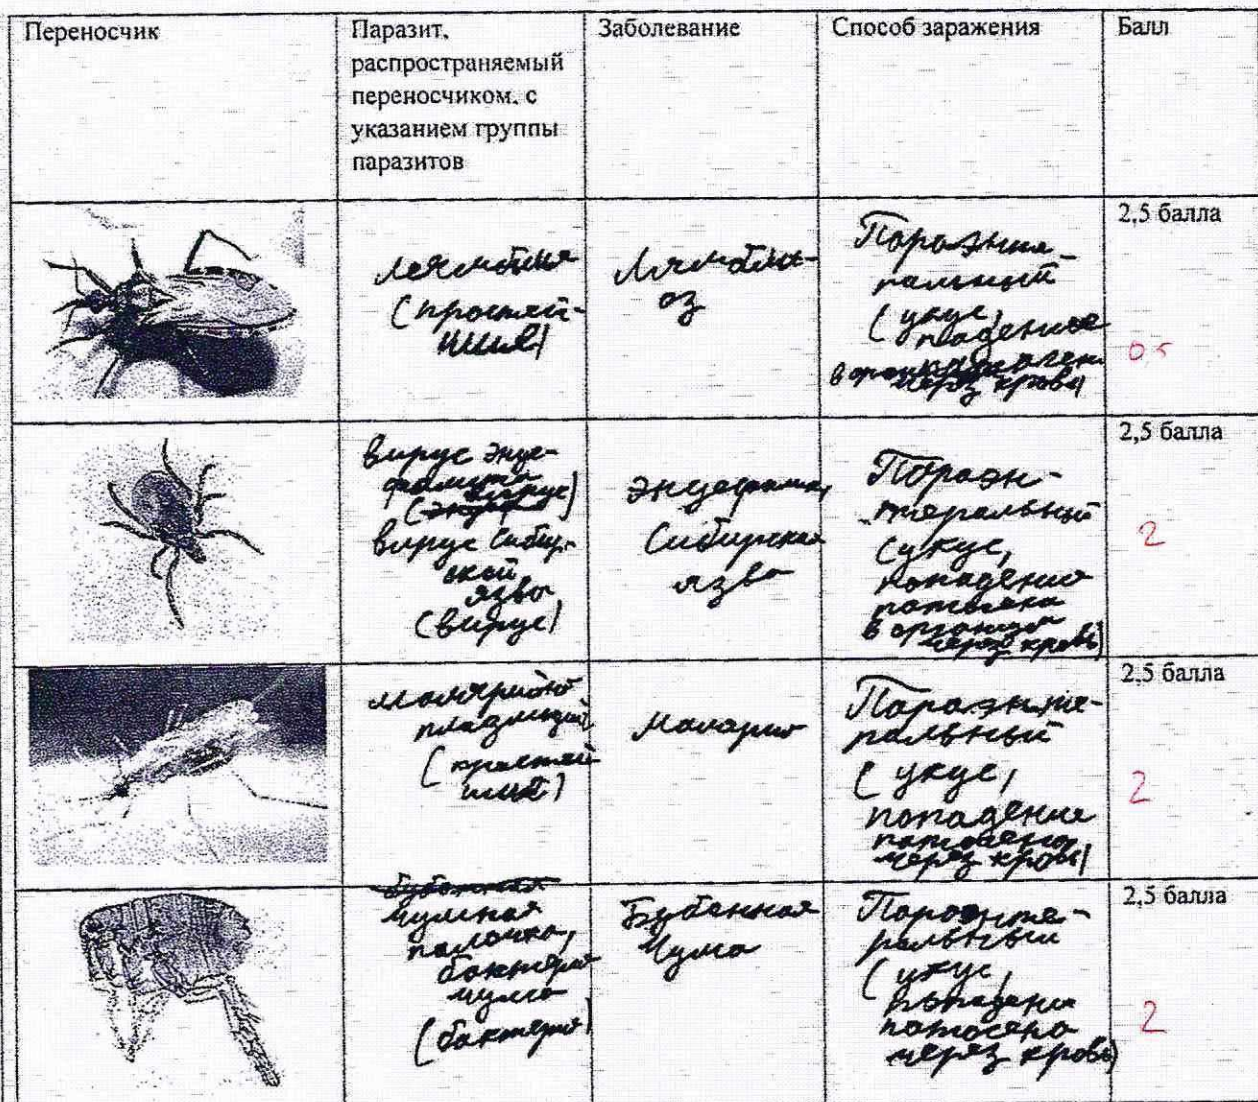 Переносчик
Паразит,
распространяемый
переносчиком, с
указанием группы
паразитов
Заболевание
Способ заражения
Балл
лейшмания
(простей-
шие)
Лямблиоз-
оз
Параэнте-
ральный
(укус,
попадение
через кровь)
2,5 балла
05
вирус энце-
фалита
(вирус)
вирус Сибир-
ской
язвы
(вирус)
энцефалит,
Сибирская
язва
Параэн-
теральный
(укус,
попадение
патогена
в организм
через кровь)
2,5 балла
2
малярийный
плазмодий
(простей-
шие)
Малария
Параэнте-
ральный
(укус,
попадение
патогена
через кровь)
2,5 балла
2
чумная
палочка,
бактерия
чумы
(бактерия)
Бубенная
Чума
Параэнте-
ральный
(укус,
попадение
патогена
через кровь)
2,5 балла
2